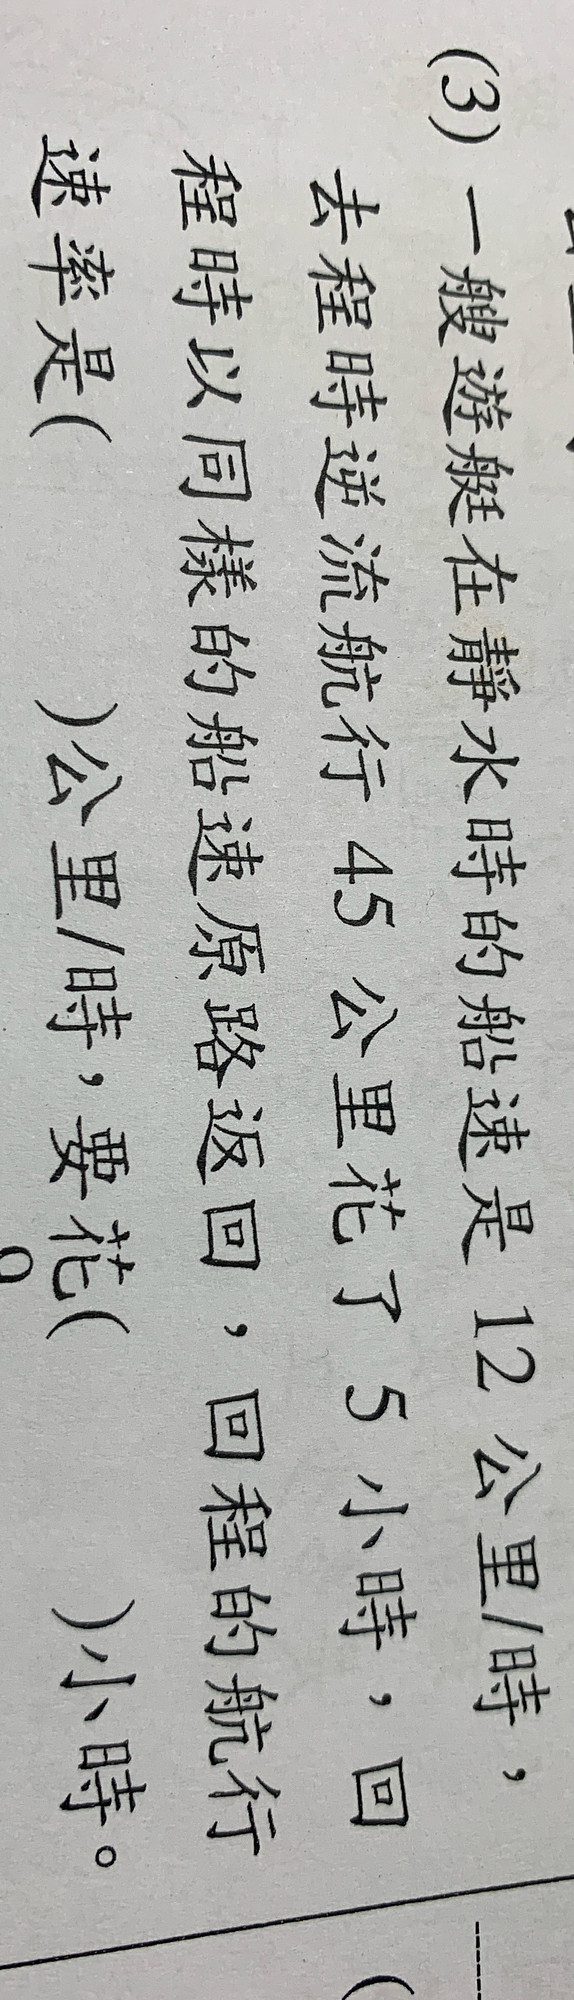 (3) 一艘遊艇在靜水時的船速是 12 公里/時，
去程時逆流航行 45 公里花了 5 小時，回
程時以同樣的船速原路返回，回程的航行
速率是(　　　)公里/時，要花(　　　)小時。